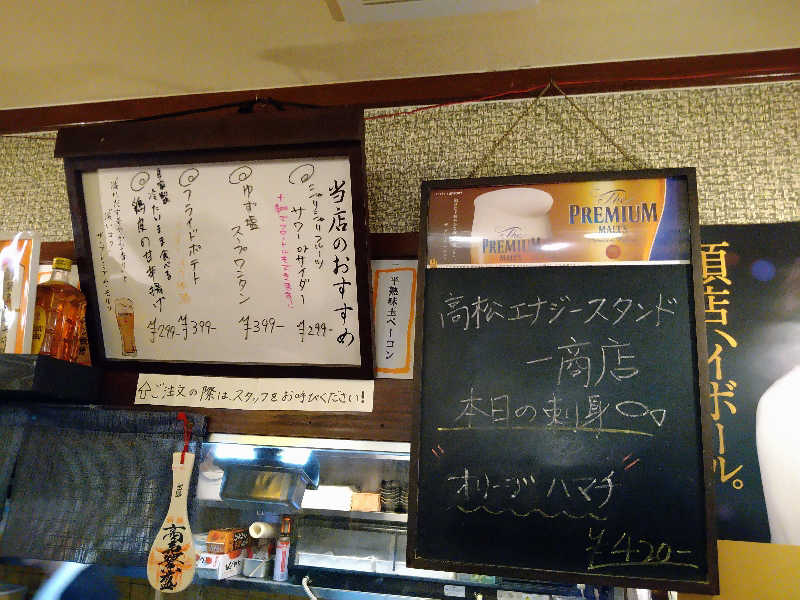 当店のおすすめ
シャリシャリフルーツ
サワーorサイダー
¥299-
ゆず塩
スープワンタン
¥399-
フライドポテト
¥399-
自家製
冷たいまま食べる
鶏皮の甘辛揚げ
¥299-
半熟味玉ベーコン
⇧ご注文の際は、スタッフをお呼びください!
The
PREMIUM
MALT'S
The
PREMIUM
MALT'S
高松エナジースタンド
一商店
本日の刺身
"オリーブハマチ"
¥420-
頂店ハイボール。